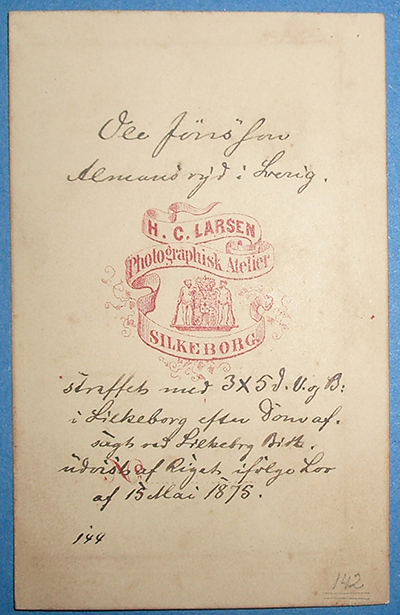 Ole Jönsson
Almansryd i Sverig.
H. C. LARSEN
Photographisk Atelier
SILKEBORG
straffet med 3X5 d. V. og B:
i Silkeborg efter Dom af.
sagt ved Silkebrg Birk.
udvist af Riget ifølge Lov
af 15 Mai 1875.
No
144
142